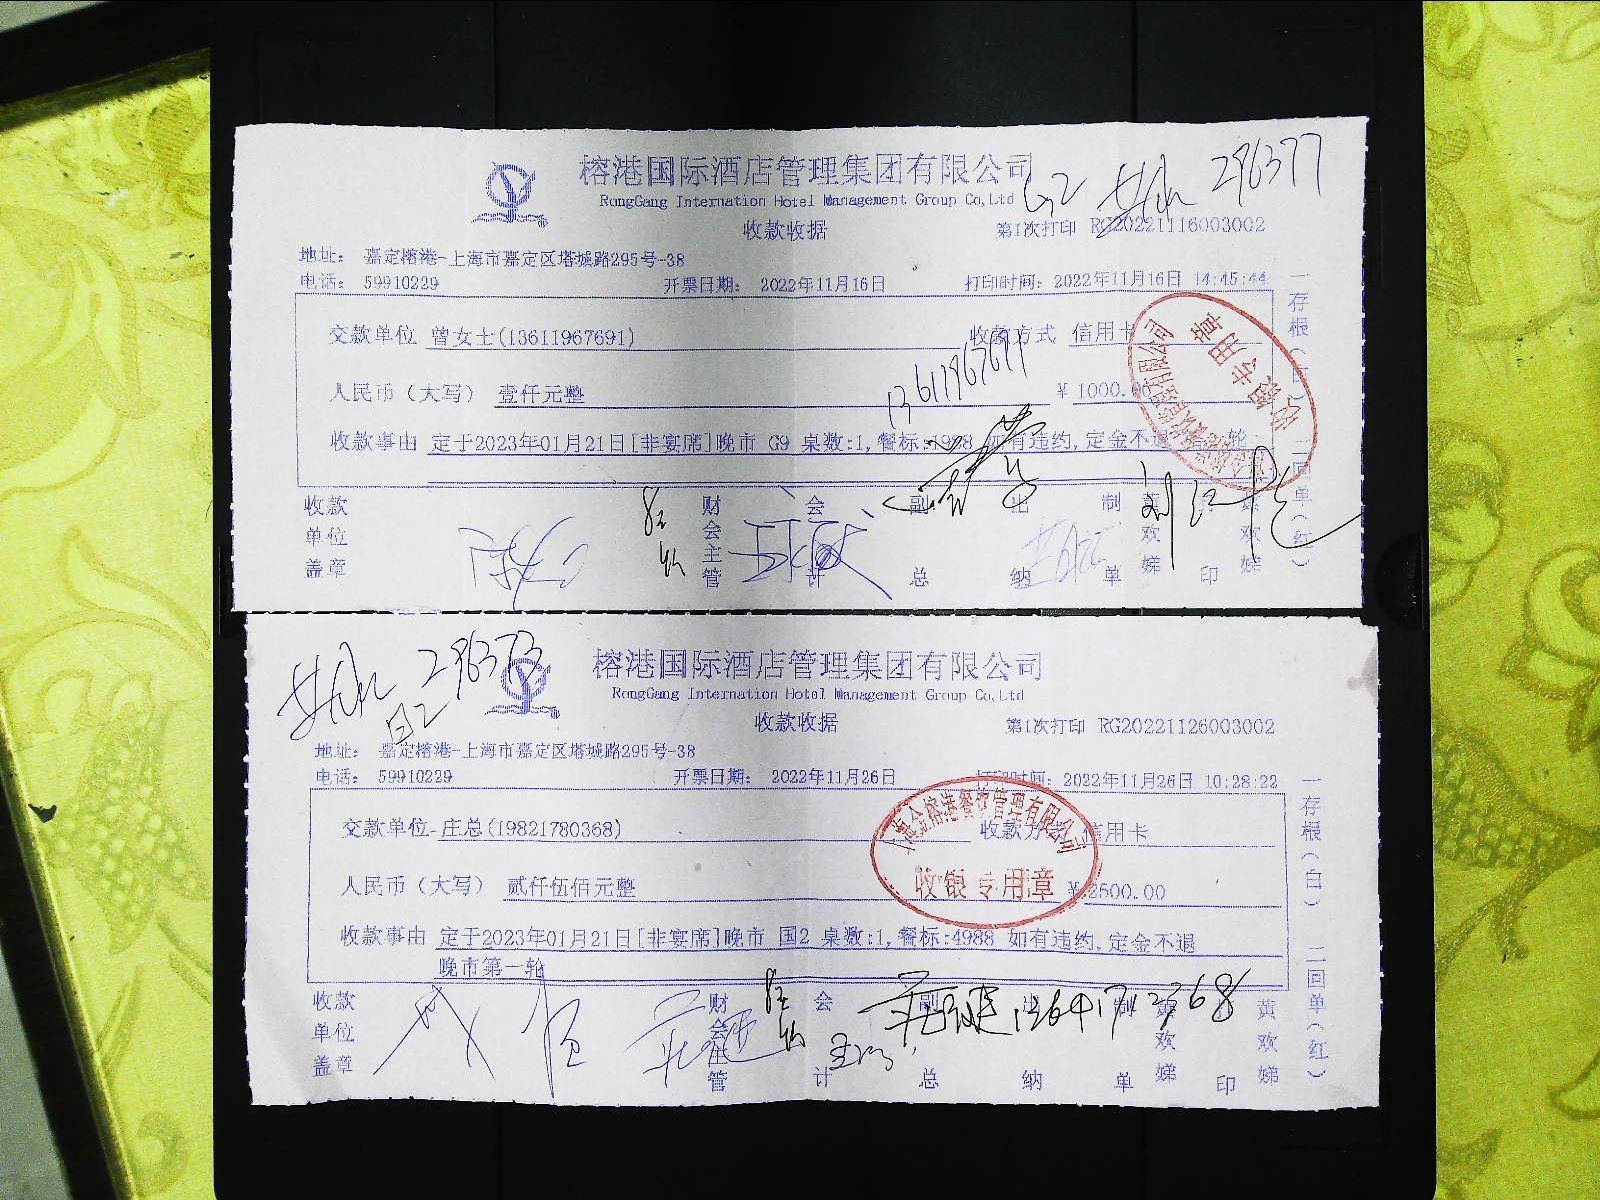 榕港国际酒店管理集团有限公司
RongGang Internation Hotel Management Group Co,Ltd
G2 296377
收款收据
第1次打印 RG20221116003002
地址： 嘉定榕港-上海市嘉定区塔城路295号-38
电话： 59910229 开票日期： 2022年11月16日 打印时间： 2022年11月16日 14:45:44
交款单位 曾女士(13611967691) 收款方式 信用卡
人民币（大写） 壹仟元整 ¥ 1000.00
13611967691
收款事由 定于2023年01月21日[非宴席]晚市 G9 桌数:1,餐标:1988 如有违约,定金不退 轮
收款单位盖章 财会主管 会计 副总 出纳 制单 黄欢娣 印
一存根（白） 二回单（红）
296373
国2
榕港国际酒店管理集团有限公司
RongGang Internation Hotel Management Group Co,Ltd
收款收据
第1次打印 RG20221126003002
地址： 嘉定榕港-上海市嘉定区塔城路295号-38
电话： 59910229 开票日期： 2022年11月26日 打印时间： 2022年11月26日 10:28:22
交款单位 庄总(19821780368) 收款方式 信用卡
人民币（大写） 贰仟伍佰元整 ¥ 2500.00
收银专用章
收款事由 定于2023年01月21日[非宴席]晚市 国2 桌数:1,餐标:4988 如有违约,定金不退
晚市第一轮
收款单位盖章 财会主管 会计 副总 出纳 制单 黄欢娣 打印 黄欢娣
一存根（白） 二回单（红）